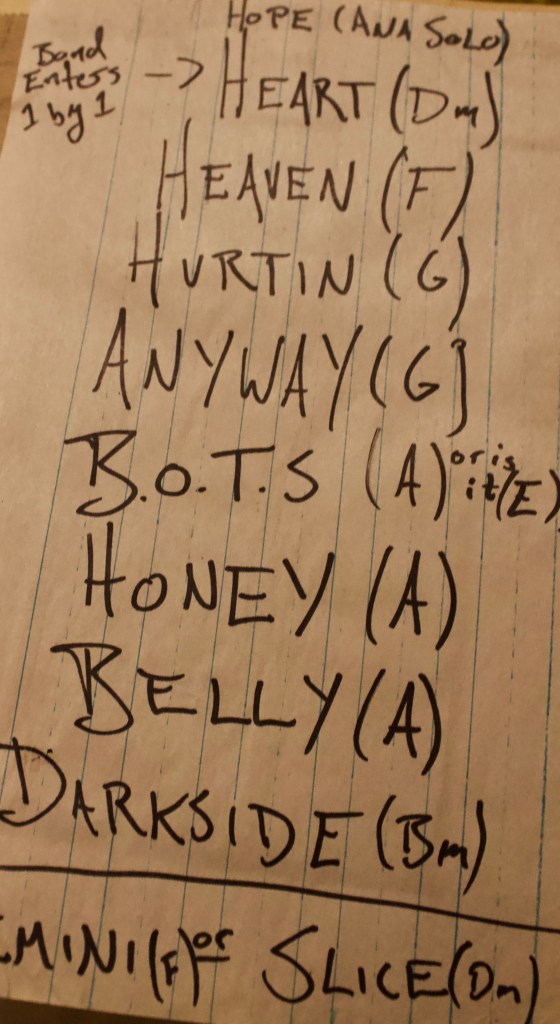 HOPE (ANA SOLO)
Band
Enters
1 by 1
-> HEART (Dm)
HEAVEN (F)
HURTIN (G)
ANYWAY (G]
B.O.T.S (A) or is it (E)
HONEY (A)
BELLY (A)
DARKSIDE (Bm)
EMINI (F) or SLICE (Dm)